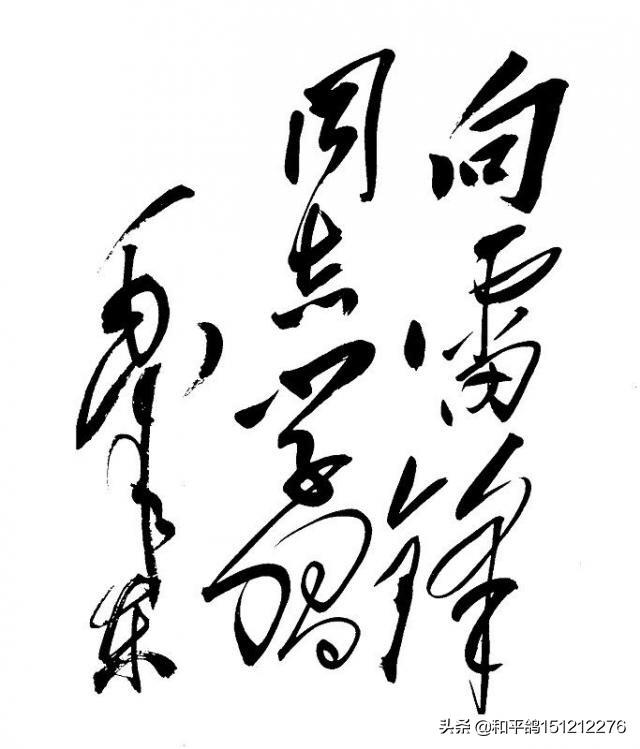 向雷锋
同志学习
毛泽东
头条 @和平鸽151212276